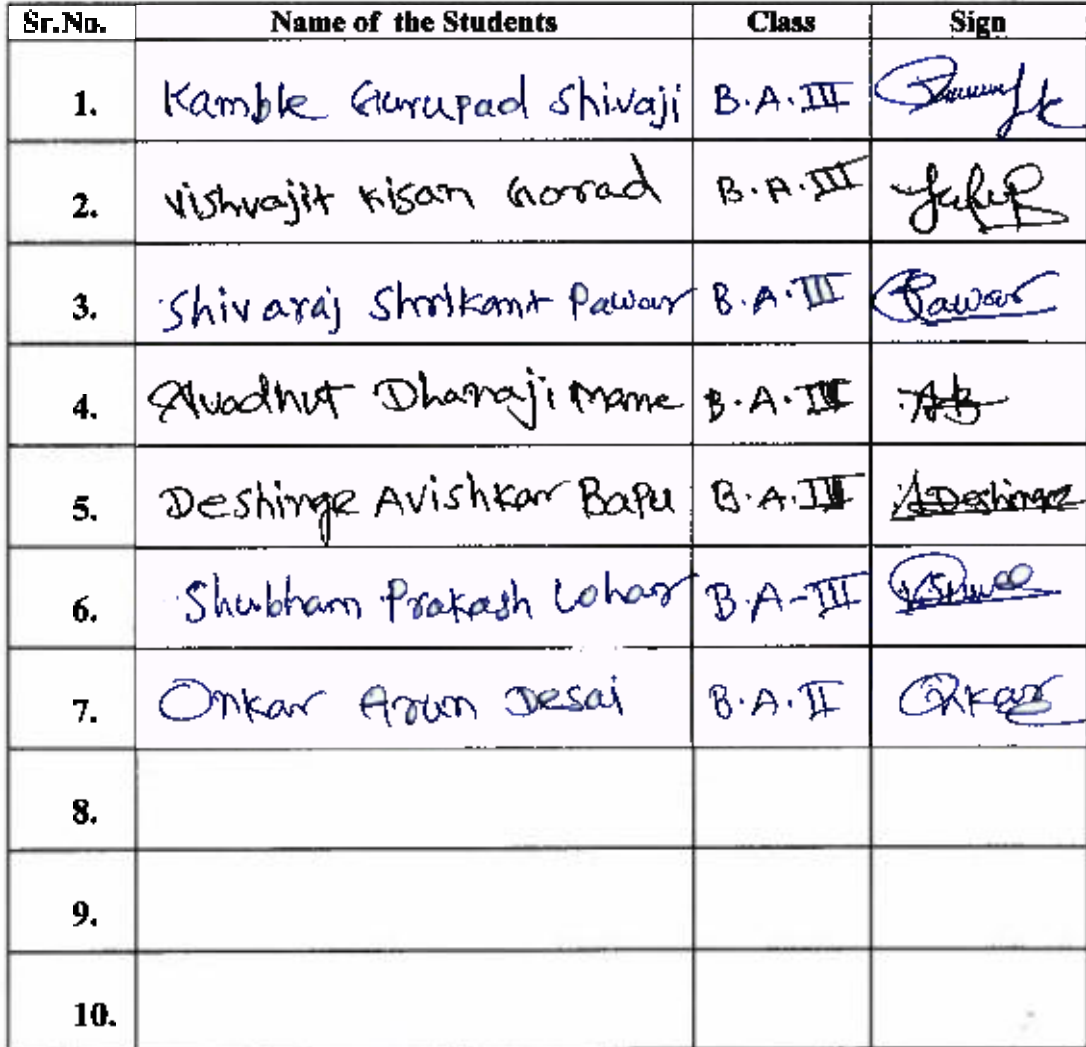 Sr.No. Name of the Students Class Sign
1. Kamble Gurupad Shivaji B.A.III
2. Vishvajit Kisan Gorad B.A.III
3. Shivaraj Shrikant Pawar B.A.III Pawar
4. Avadhut Dhanaji Mane B.A.III AB
5. Deshinge Avishkar Bapu B.A.III ADeshinge
6. Shubham Prakash Lohar B.A-III
7. Onkar Arun Desai B.A.II Onkar
8.
9.
10.